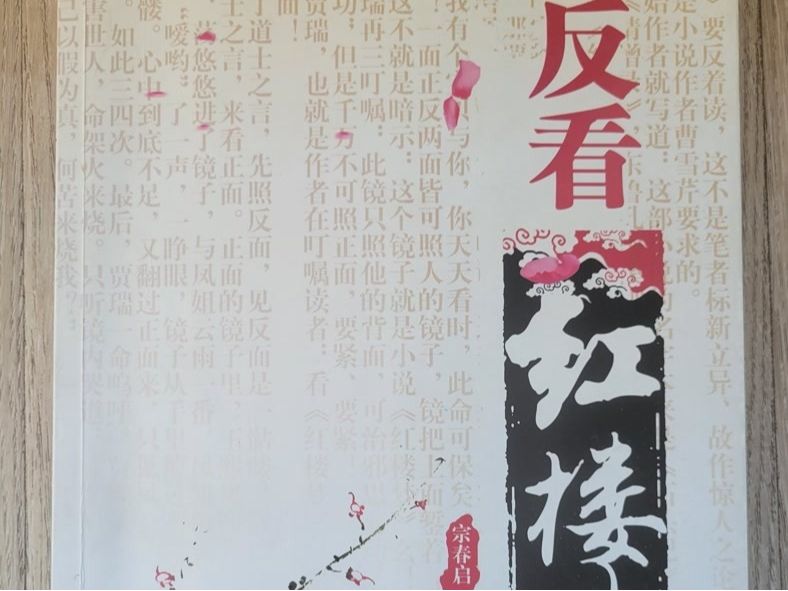 反看
红楼
宗春启
》要反着读，这不是笔者标新立异、故作惊人之论
是小说作者曹雪芹要求的。
始作者就写道：这部
我有个
与你，你天天看时，此命可保矣
！一面正反两面皆可照人的镜子，镜把上面錾着
这不就是暗示：这个镜子就是小说《红楼
瑞再三叮嘱：此镜只照他的背面，可治邪
功；但是千万不可照正面，要紧、要紧
贾瑞，也就是作者在叮嘱读者：看《红楼
面！
了道士之言，先照反面，见反面是一
士之言，来看正面。正面的镜子里，
，荡悠悠进了镜子，与凤姐云雨一番，
“嗳哟”了一声，一睁眼，镜子从手里
髅。心中到底不足，又翻过正面来，只
。如此三四次。最后，贾瑞一命呜呼，
害世人，命架火来烧。只听镜内哭道
己以假为真，何苦来烧我？